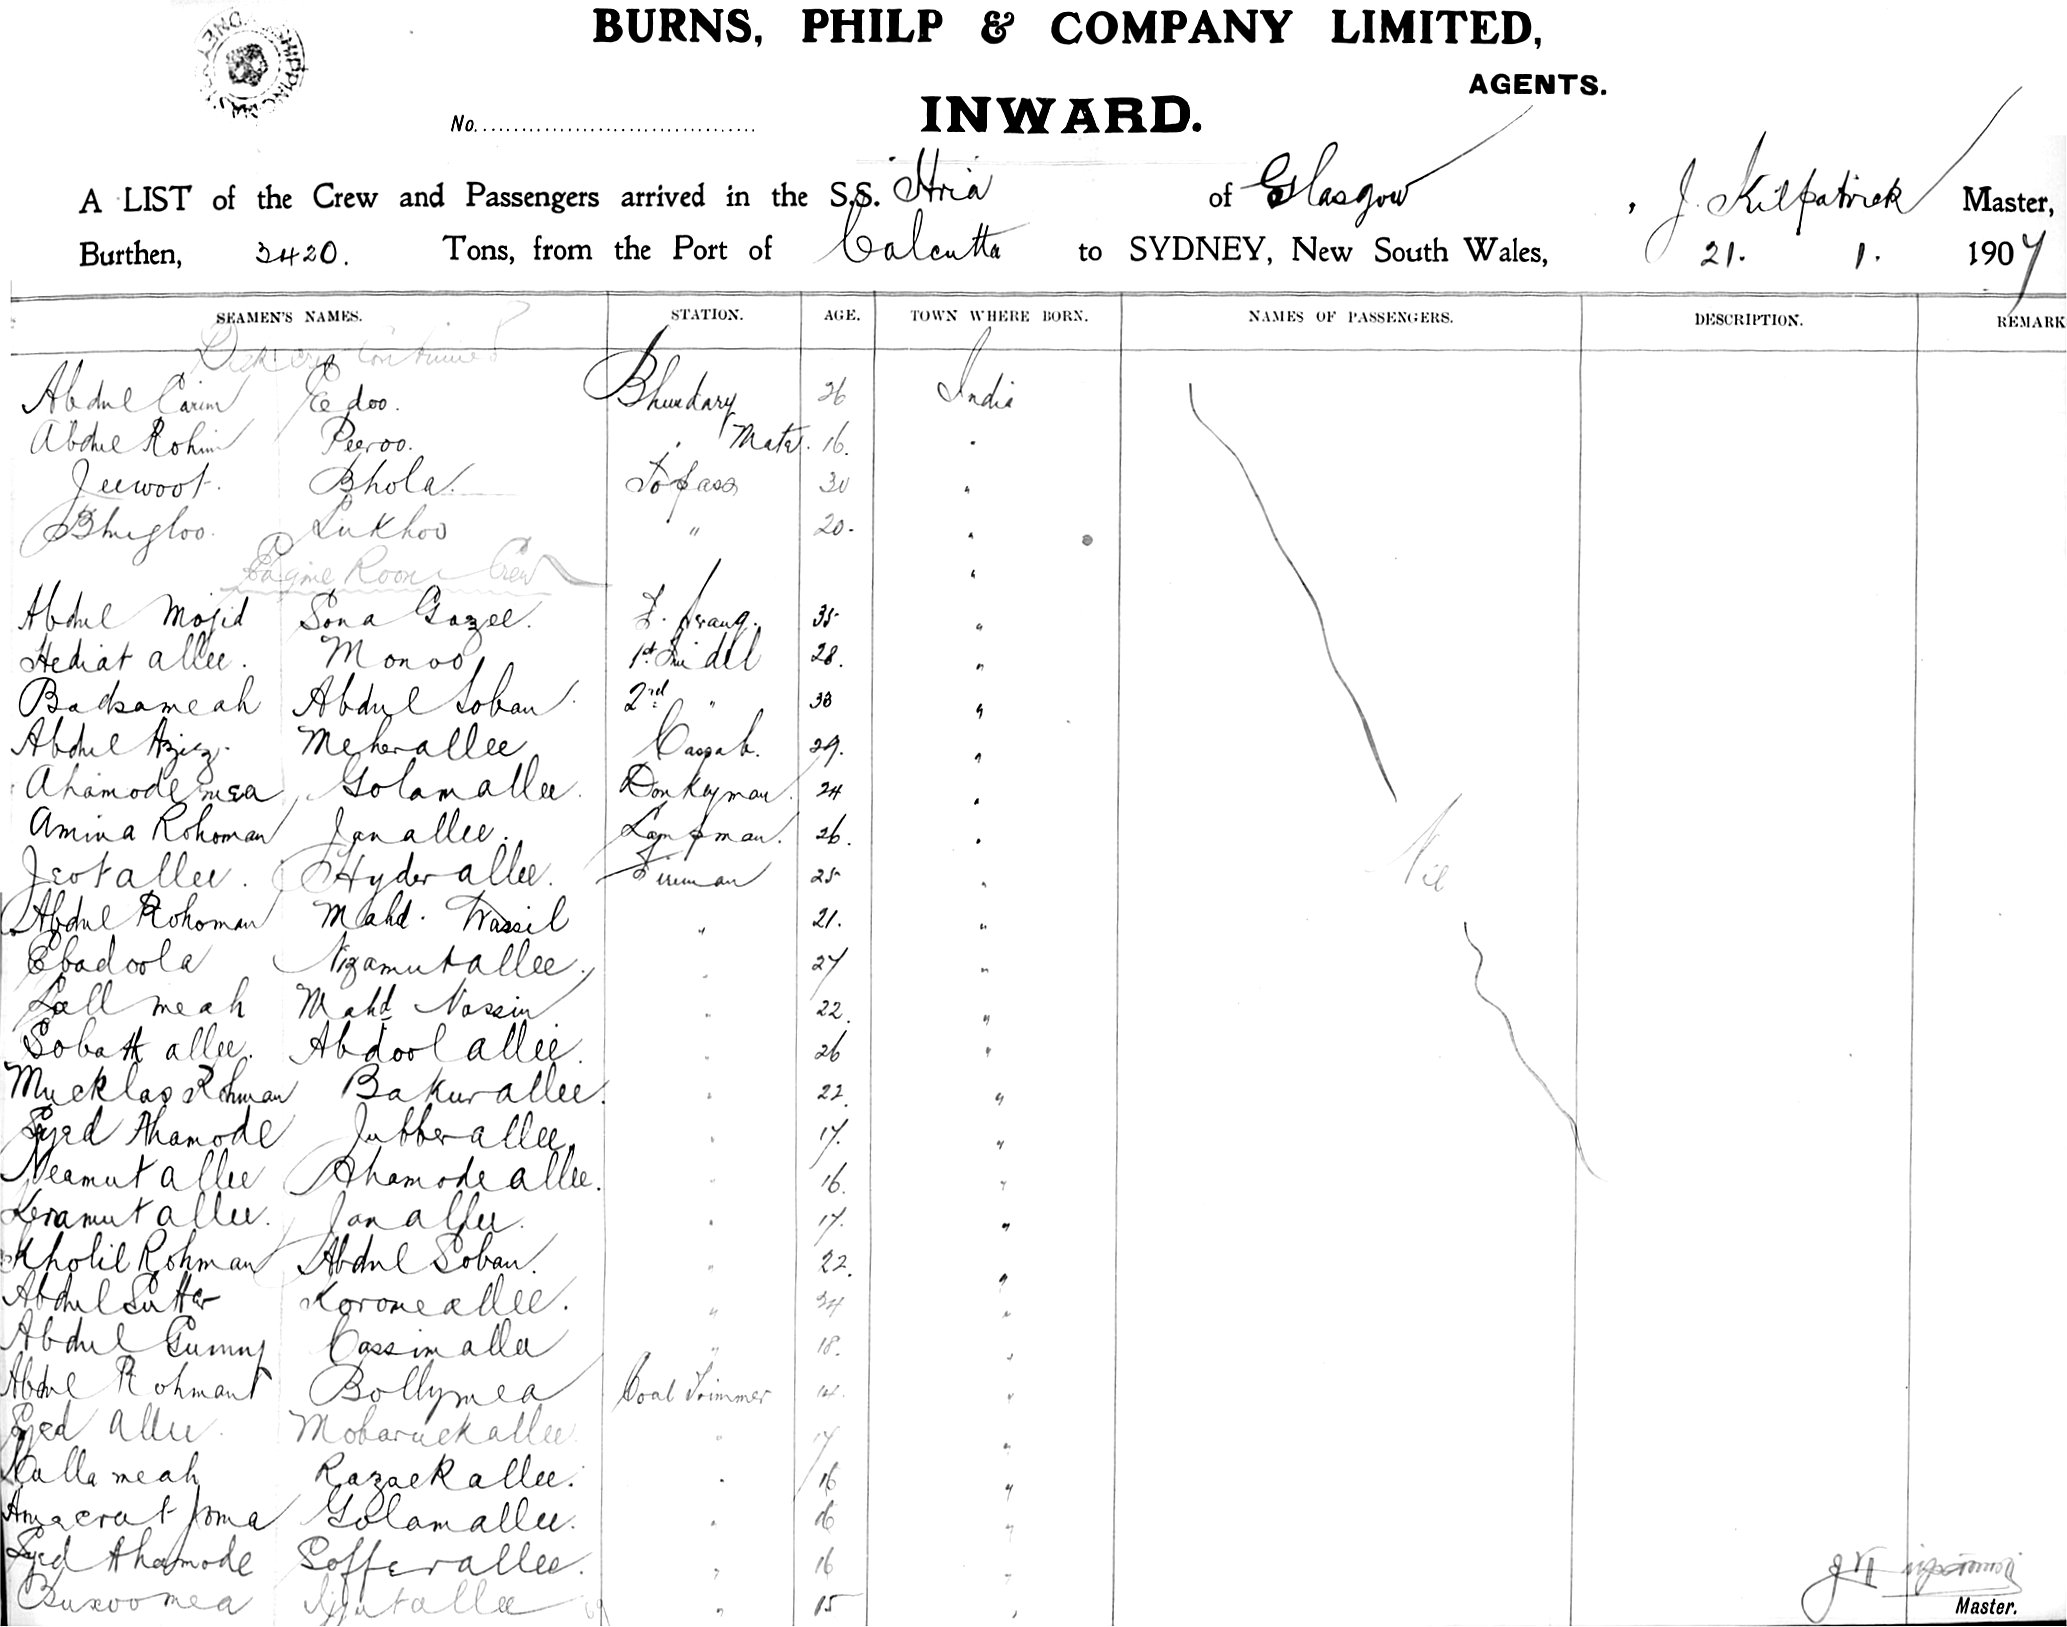 BURNS, PHILP & COMPANY LIMITED,
AGENTS.
INWARD.
No.
A LIST of the Crew and Passengers arrived in the S.S. Itria of Glasgow, J. Kilpatrick Master,
Burthen, 3420. Tons, from the Port of Calcutta to SYDNEY, New South Wales, 21. 1. 1907
SEAMEN'S NAMES. STATION. AGE. TOWN WHERE BORN. NAMES OF PASSENGERS. DESCRIPTION. REMARK
Deck crew continued
Abdul Carim Eedoo. Bhundary 26 India
Abdul Rohim Peeroo. " Mate. 16. "
Jeewoot. Bhola. Topass 30 "
Bhugloo. Lukhoo " 20. "
Engine Room Crew "
Abdul Mojid Sona Gazee. F. Serang. 35 "
Hediat allee. Monoo 1st Tindel 28. "
Badsameah Abdul Soban. 2nd " 33 "
Abdul Aziz. Meherallee Cassab. 29. "
Ahamode mea Golamallee. Donkeyman. 24 "
Amina Rohoman Janallee. Lampman. 26. "
Jeotallee. Hyderallee. Fireman 25 "
Abdul Rohoman Mahd. Wassil " 21. "
Ebadoola Nizamutallee. " 27 "
Lall meah Mahd Nassin " 22. "
Sobatt allee. Abdool allee. " 26 "
Mucklas Rohman Bakurallee. " 22. "
Syed Ahamode Jubberallee. " 17. "
Neamut allee Ahamode allee. " 16. "
Keramut allee. Janallee. " 17. "
Kholil Rohman Abdul Soban. " 22. "
Abdul Sutter Koromeallee. " 34 "
Abdul Gunny Cassimallee " 18. "
Abdul Rohman Bollymea Coal Trimmer 14. "
Syed Allee. Mobaruckallee " 17 "
Kalla meah Razackallee. " 16 "
Golamallee. " 16 "
Syed Ahamode Sofferallee. " 16 "
Buxoomea " 15 "
Nil
Master.